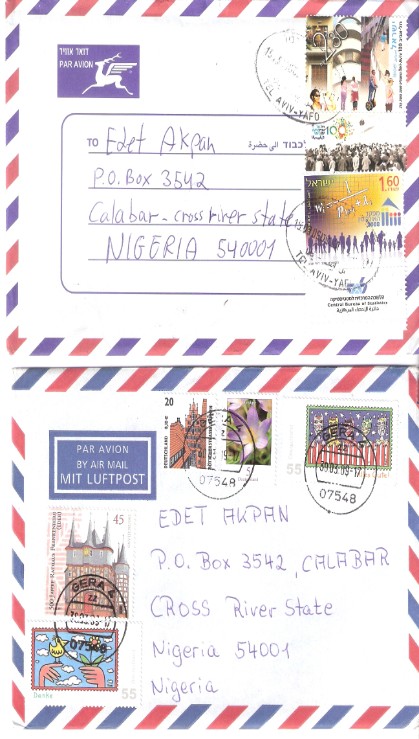 דואר אוויר
PAR AVION
TO
לכבוד
Edet Akpan
P.O.Box 3542
Calabar - cross river state
NIGERIA 540001
TEL AVIV-YAFO
1.60
ישראל
2008
TEL AVIV-YAFO
Central Bureau of Statistics
PAR AVION
BY AIR MAIL
MIT LUFTPOST
20
DEUTSCHLAND
5
55
07548
09.03.09-17
07548
EDET AKPAN
P.O. Box 3542, CALABAR
CROSS River State
Nigeria 54001
Nigeria
45
GERA
07548
Danke
55